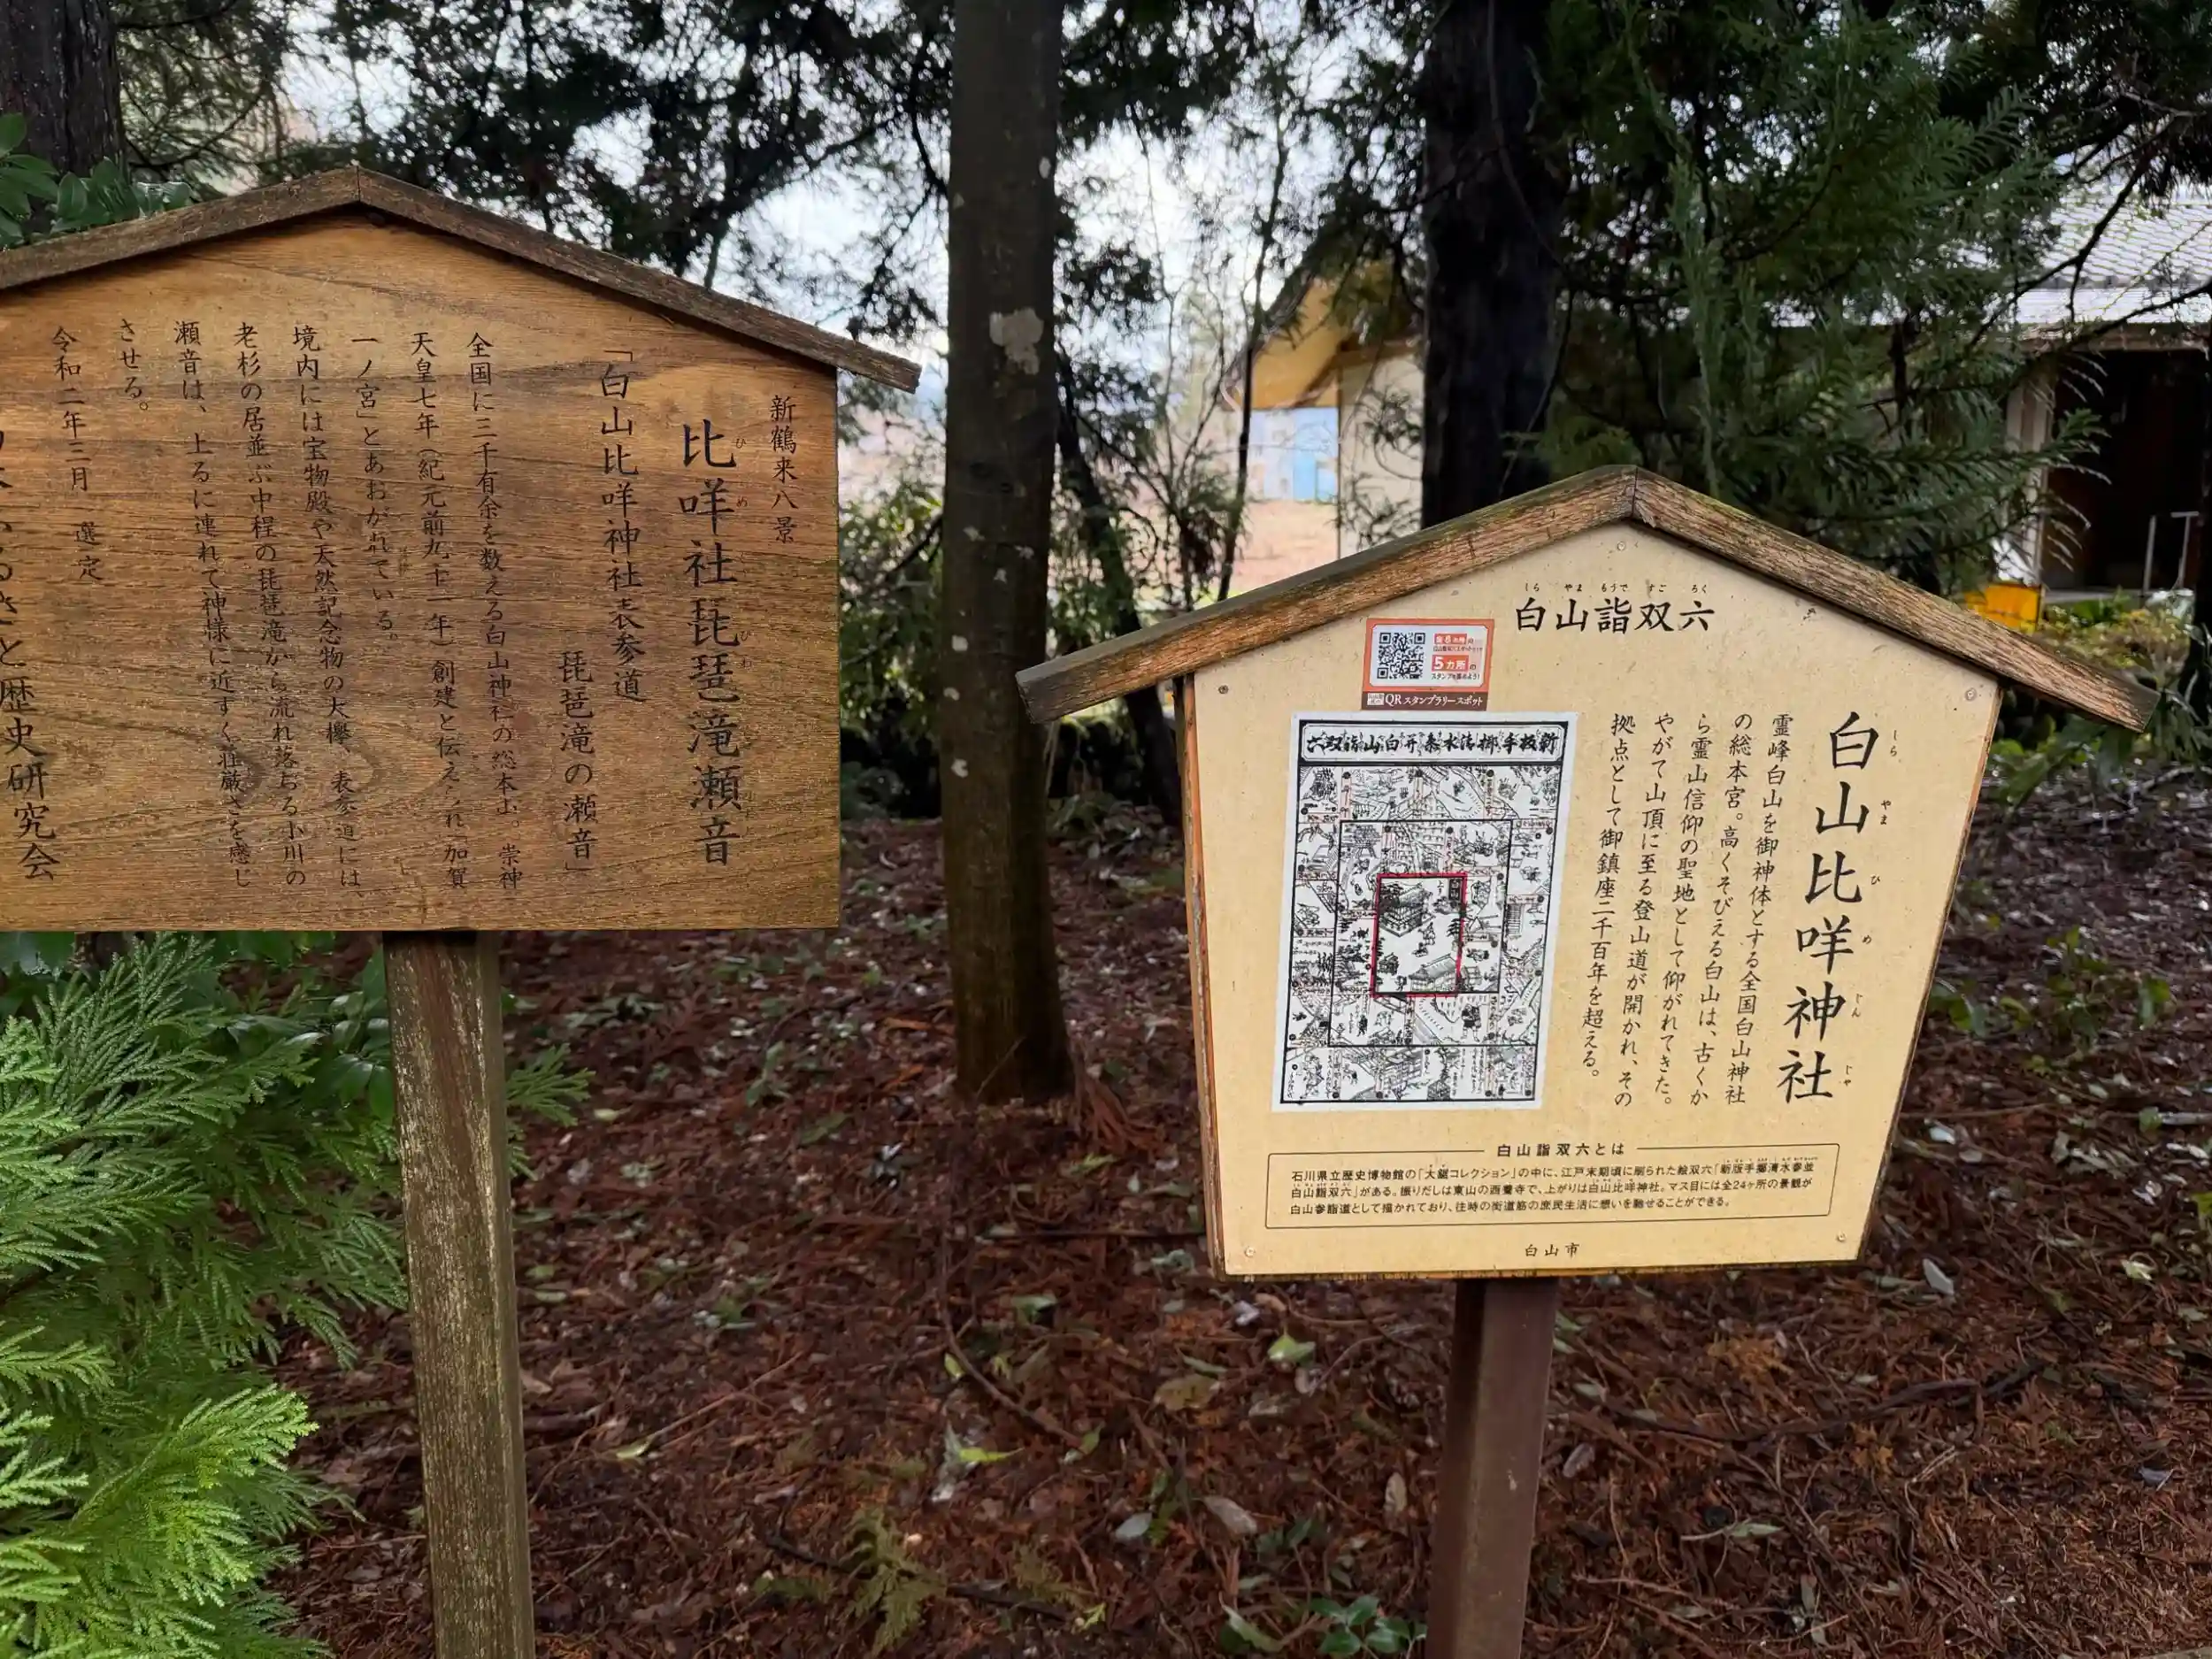 新鶴来八景
比咩社琵琶滝瀬音
ひめ
びわ
「白山比咩神社表参道
琵琶滝の瀬音」
全国に三千有余を数える白山神社の総本山。崇神
天皇七年(紀元前九十一年)創建と伝えられ「加賀
一ノ宮」とあおがれている。
境内には宝物殿や天然記念物の大欅、表参道には、
老杉の居並ぶ中程の琵琶滝から流れ落ちる小川の
瀬音は、上るに連れて神様に近ずく荘厳さを感じ
させる。
令和二年三月 選定
ふるさと歴史研究会
しら やま もうで すご ろく
白山詣双六
5カ所の
スタンプを集めよう!
QRスタンプラリースポット
白山比咩神社
しら やま ひ め じん じゃ
霊峰白山を御神体とする全国白山神社
の総本宮。高くそびえる白山は、古くか
ら霊山信仰の聖地として仰がれてきた。
やがて山頂に至る登山道が開かれ、その
拠点として御鎮座二千百年を超える。
白山詣双六とは
石川県立歴史博物館の「大鋸コレクション」の中に、江戸末期頃に刷られた絵双六「新版手擲清水参並
白山詣双六」がある。振りだしは東山の西養寺で、上がりは白山比咩神社。マス目には全24ヶ所の景観が
白山参詣道として描かれており、往時の街道筋の庶民生活に想いを馳せることができる。
白山市